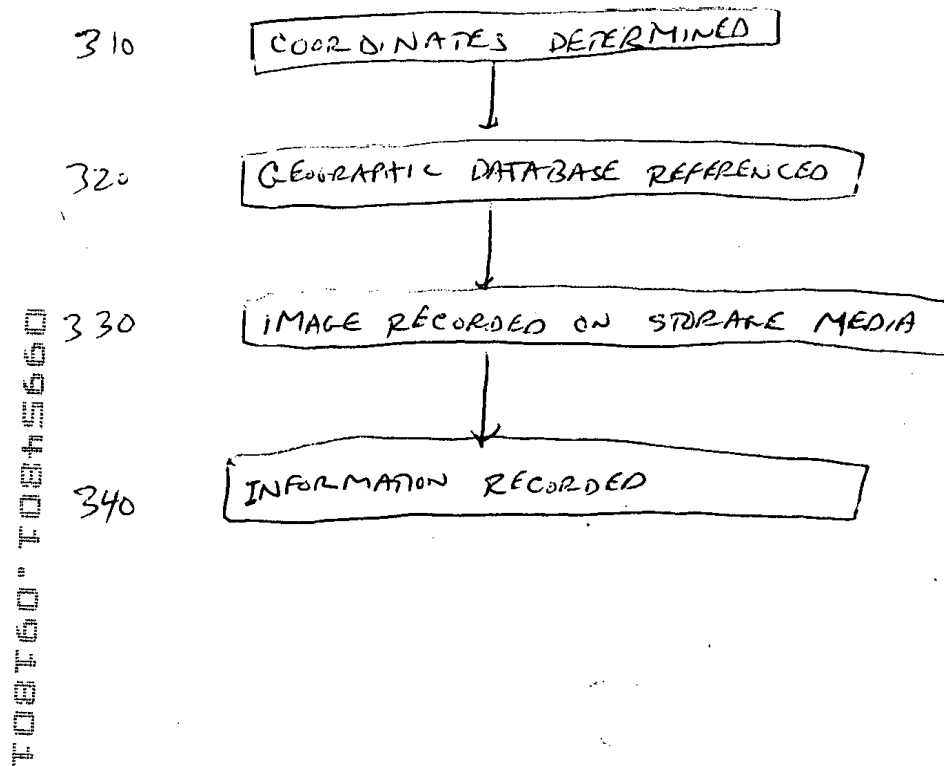 310 COORDINATES DETERMINED
320 GEOGRAPHIC DATABASE REFERENCED
330 IMAGE RECORDED ON STORAGE MEDIA
340 INFORMATION RECORDED
09954801.091801